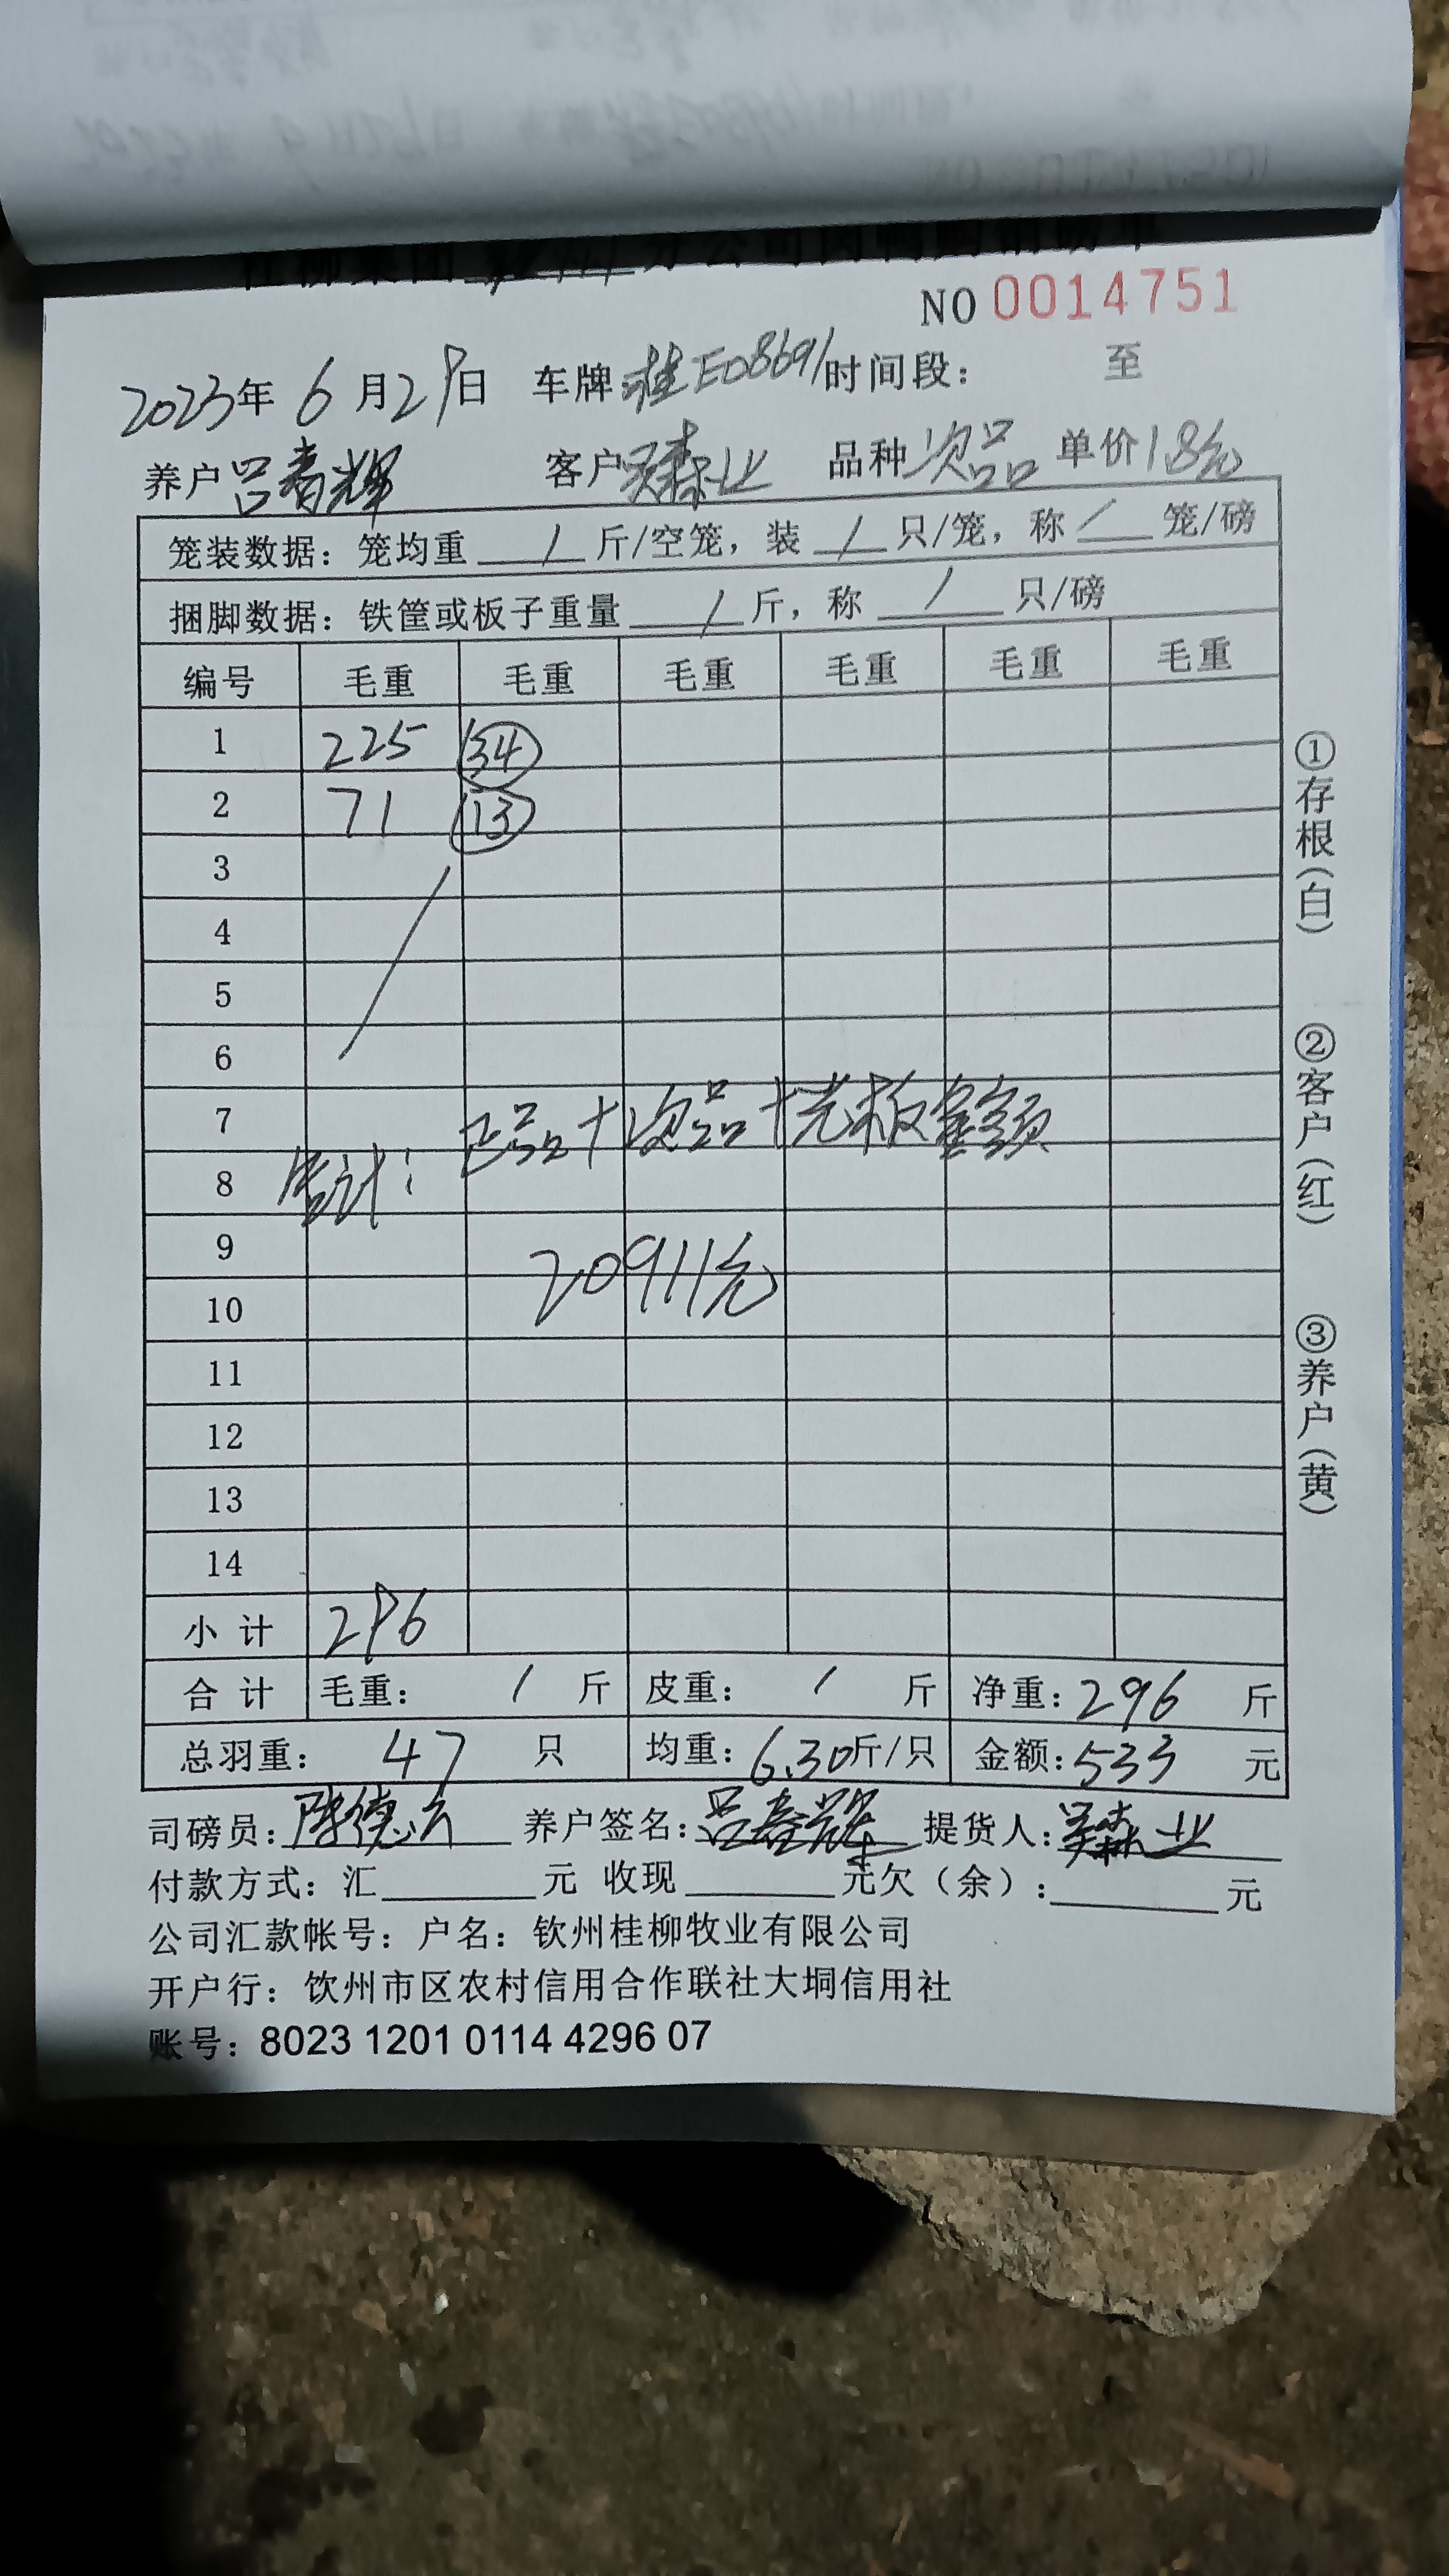 NO 0014751
2023年 6月29日 车牌 桂E08691 时间段: 至
养户 吕春辉 客户 吴森业 品种 次品 单价 1.8元
笼装数据: 笼均重 / 斤/空笼, 装 / 只/笼, 称 / 笼/磅
捆脚数据: 铁筐或板子重量 / 斤, 称 / 只/磅
编号 毛重 毛重 毛重 毛重 毛重 毛重
1 225 34
2 71 13
3
4
5
6
7 正品+次品+光板金额
8 合计:
9
10 20911元
11
12
13
14
小计 296
合计 毛重: / 斤 皮重: / 斤 净重: 296 斤
总羽重: 47 只 均重: 6.30 斤/只 金额: 533 元
司磅员: 陈德 养户签名: 吕春辉 提货人: 吴森业
付款方式: 汇 元 收现 元 欠(余): 元
公司汇款帐号: 户名: 钦州桂柳牧业有限公司
开户行: 饮州市区农村信用合作联社大垌信用社
账号: 8023 1201 0114 4296 07
①存根(白)
②客户(红)
③养户(黄)